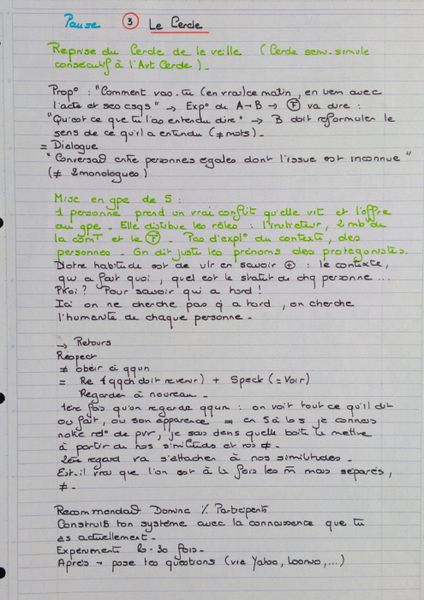 Pause ③ Le Cercle
Reprise du Cercle de la veille (Cercle sem. simulé
consécutif à l'Avt Cercle).
Prop° : "Comment vas-tu (en vrai) ce matin, en lien avec
l'acte et ses csqs" → Exp° de A→B → Ⓕ va dire :
"Qu'est ce que tu l'as entendu dire" → B doit reformuler le
sens de ce qu'il a entendu (≠ mots).
= Dialogue
"Conversat° entre personnes égales dont l'issue est inconnue"
(≠ 2 monologues)
Mise en gpe de 5 :
1 personne prend un vrai conflit qu'elle vit et l'offre
au gpe. Elle distribue les rôles : l'
2 mb de
la comT et le Ⓕ. Pas d'expl° du contexte, des
personnes. On dit juste les prénoms des protagonistes.
Notre habitude est de vlr en savoir ⊕ : le contexte,
qui a fait quoi, quel est le statut de chq personne...
Pkoi ? Pour savoir qui a tord !
Ici on ne cherche pas qi a tord, on cherche
l'humanité de chaque personne.
→ Retours
Respect
≠ obéir à qqun
= Re (qqch doit revenir) + Spect (= Voir)
Regarder à nouveau.
1ère fois qu'on regarde qqun : on voit tout ce qu'il dit
ou fait, ou son apparence = en 5 à 6 s je connais
notre rel° de pvr, je sais dans quelle boîte le mettre
à partir de nos similitudes et nos ≠.
2ème regard va s'attacher à nos similitudes.
Est-il vrai que l'on est à la fois les m̂ mais séparés,
≠.
Recommandat° Dominic % Participants
Construis ton système avec la connaissance que tu
as actuellement.
Expérimente 20-30 fois.
Après → pose tes questions (via Yahoo, Loomio,...)